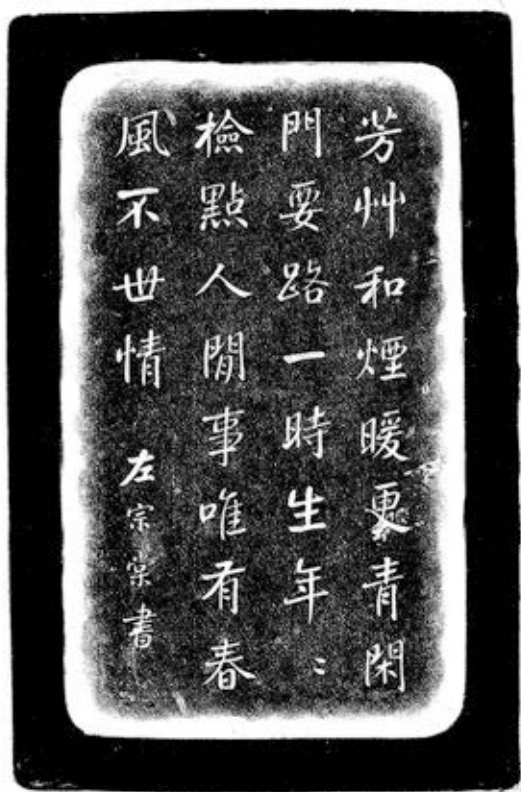 芳艸和煙暖更青閑
門要路一時生年〻
檢點人閒事唯有春
風不世情 左宗棠書